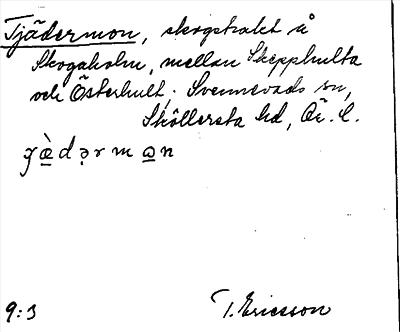 Tjädermon, skogstrakt å
Skogaholm, mellan Skepphulta
och Österhult, Svennevads sn,
Sköllersta hd, Ör. l.
9:3 T. Ericsson